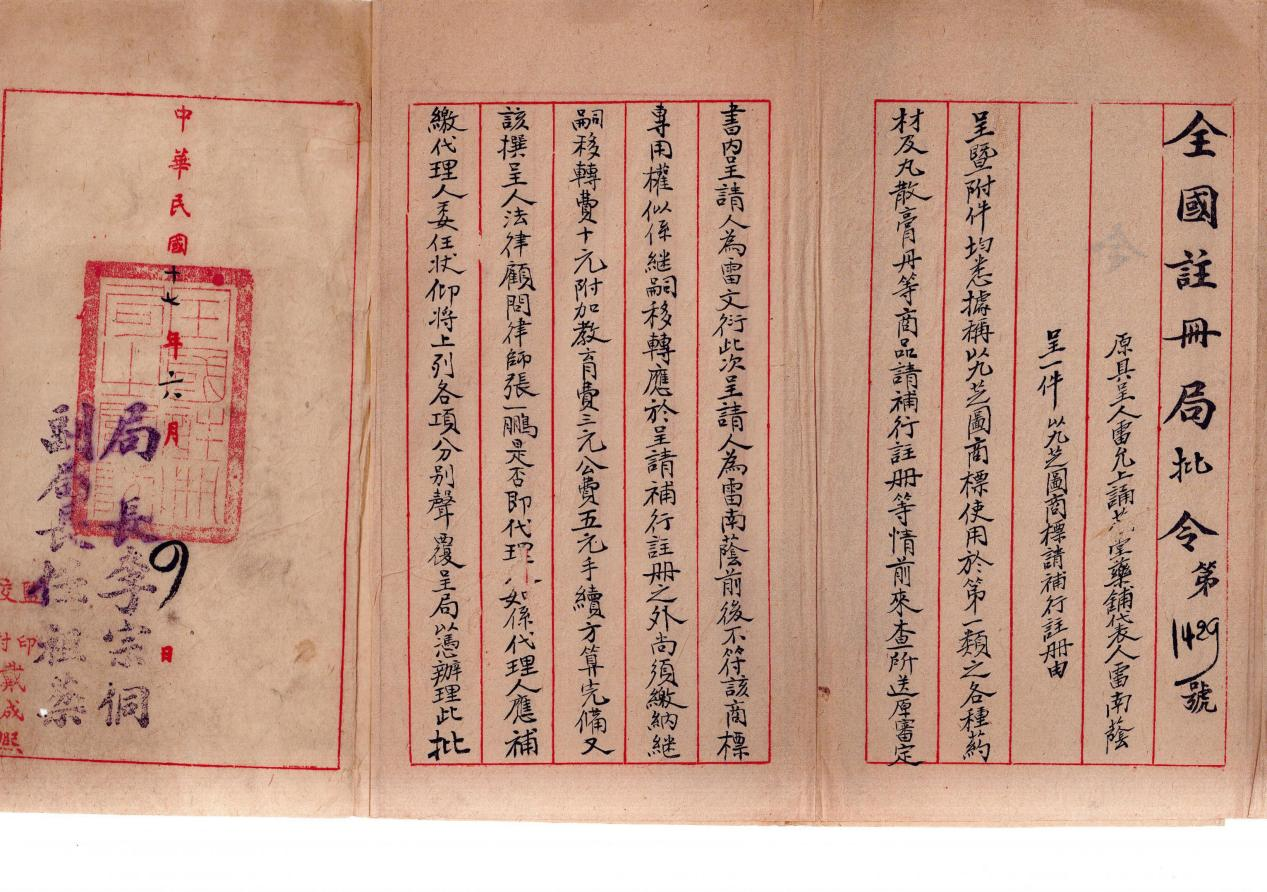 全國註冊局批令第1429號
原具呈人雷允上誦芬堂藥舖代表人雷南蔭
呈一件 以九芝圖商標請補行註冊由
呈暨附件均悉據稱以九芝圖商標使用於第一類之各種葯
材及丸散膏丹等商品請補行註冊等情前來查所送原審定
書內呈請人為雷文衍此次呈請人為雷南蔭前後不符該商標
專用權似係繼嗣移轉應於呈請補行註冊之外尚須繳納繼
嗣移轉費十元附加教育費三元公費五元手續方算完備又
該撰呈人法律顧問律師張一鵬是否即代理人如係代理人應補
繳代理人委任狀仰將上列各項分別聲覆呈局以憑辦理此批
中華民國十七年六月9日
局長李宗侗
副局長任祖棻
監印
校對戴成熙